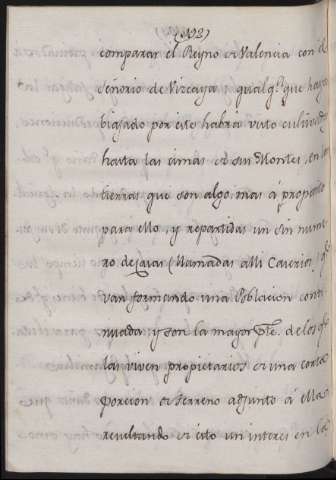 (192)
comparar el Reyno de Valencia con el
señorio de Vizcaya, qualq.ª que haya
biajado por este habra visto cultivad
hasta las cimas de sus Montes, en las
tierras que son algo mas á proposito
para ello, y repartidas un sin nume-
ro de casas (llamadas alli Caverias) q.e
van formando una Poblacion conti
nuada, y son la mayor p.te de los q.e
las viven propietarios de una corta
porcion de terreno adjunto á ellas
resultando de esto un interes en los